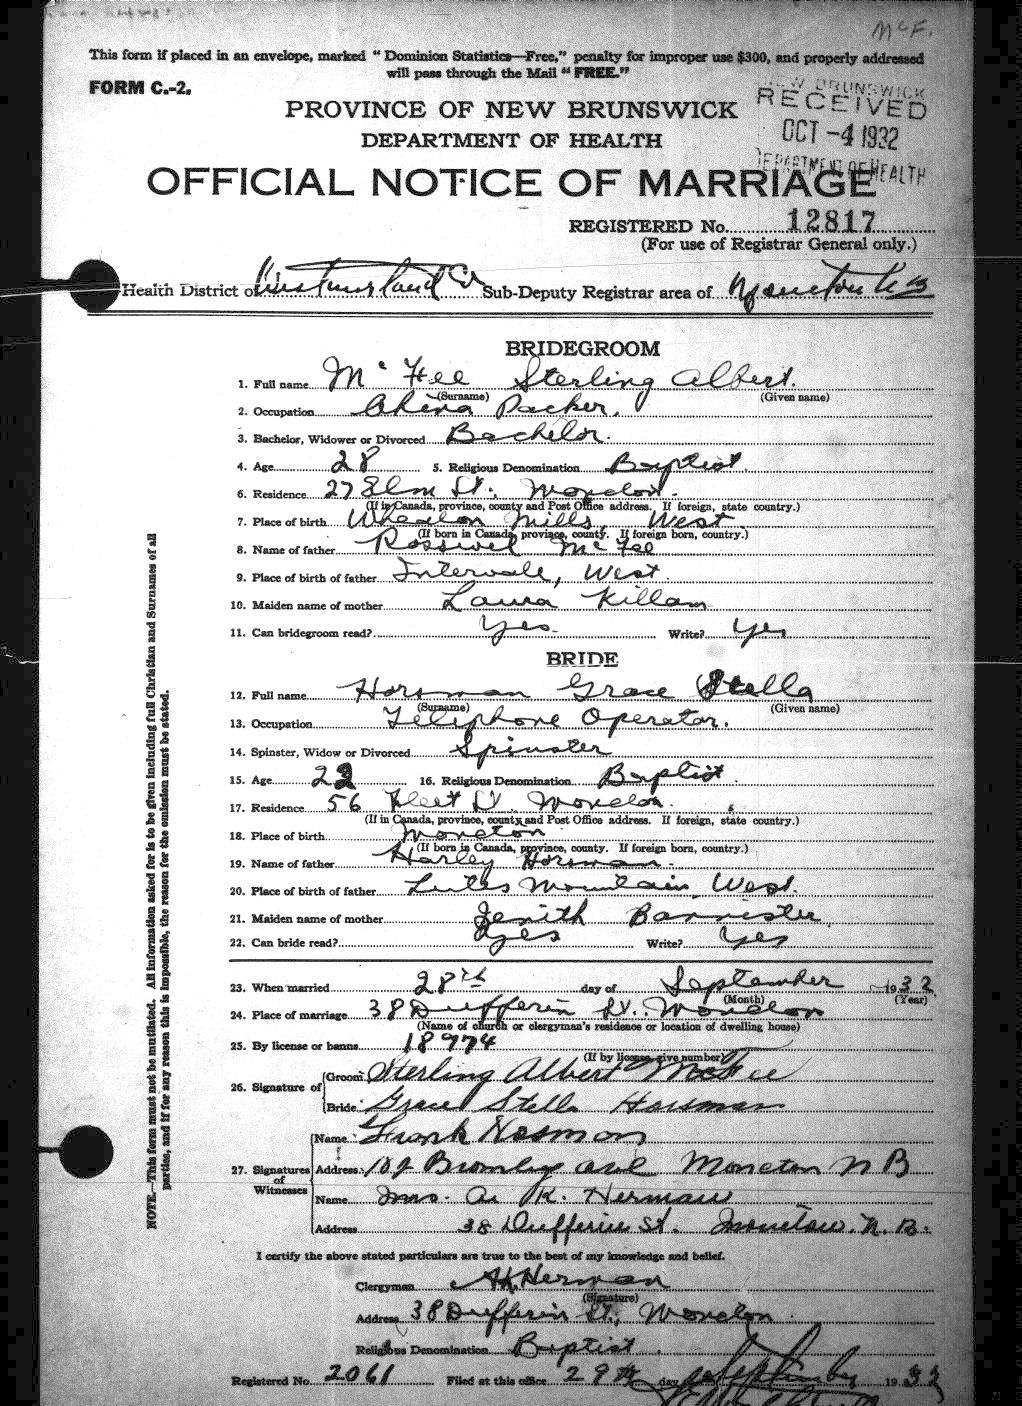 McF.
This form if placed in an envelope, marked "Dominion Statistics—Free," penalty for improper use $300, and properly addressed
will pass through the Mail "FREE."
FORM C.-2.
NEW BRUNSWICK
RECEIVED
OCT -4 1932
DEPARTMENT OF HEALTH
PROVINCE OF NEW BRUNSWICK
DEPARTMENT OF HEALTH
OFFICIAL NOTICE OF MARRIAGE
REGISTERED No. 12817
(For use of Registrar General only.)
Health District of Westmorland Co Sub-Deputy Registrar area of Moncton N B
BRIDEGROOM
1. Full name McFee Sterling Albert.
(Surname) (Given name)
2. Occupation Packer.
3. Bachelor, Widower or Divorced Bachelor.
4. Age 28 5. Religious Denomination Baptist.
6. Residence 27 Elm St., Moncton.
(If in Canada, province, county and Post Office address. If foreign, state country.)
7. Place of birth Wheaton Mills, West.
(If born in Canada, province, county. If foreign born, country.)
8. Name of father Rosswel McFee
9. Place of birth of father Intervale, West.
10. Maiden name of mother Laura Killam
11. Can bridegroom read? Yes. Write? Yes
BRIDE
12. Full name Horsman Grace Stella
(Surname) (Given name)
13. Occupation Telephone Operator.
14. Spinster, Widow or Divorced Spinster
15. Age 22 16. Religious Denomination Baptist.
17. Residence 56 Fleet St. Moncton.
(If in Canada, province, county and Post Office address. If foreign, state country.)
18. Place of birth Moncton
(If born in Canada, province, county. If foreign born, country.)
19. Name of father Harley Horsman.
20. Place of birth of father Lutes Mountain, West.
21. Maiden name of mother Zenith Bannister
22. Can bride read? Yes Write? Yes
23. When married 28th day of September 1932
(Month) (Year)
24. Place of marriage 38 Dufferin St. Moncton
(Name of church or clergyman's residence or location of dwelling house)
25. By license or banns 18974
(If by license give number)
26. Signature of Groom Sterling Albert McFee
Bride Grace Stella Horsman
27. Signatures of Witnesses Name Frank
Address Bromley ave Moncton N B
Name Mrs. A. K. Herman
Address 38 Dufferin St. Moncton. N. B.
I certify the above stated particulars are true to the best of my knowledge and belief.
Clergyman A K Herman
(Signature)
Address 38 Dufferin St., Moncton.
Religious Denomination Baptist.
Registered No. 2061 Filed at this office 29th day of September 1932
NOTE.—This form must not be mutilated. All information asked for is to be given including full Christian and Surnames of all
parties, and if for any reason this is impossible, the reason for the omission must be stated.